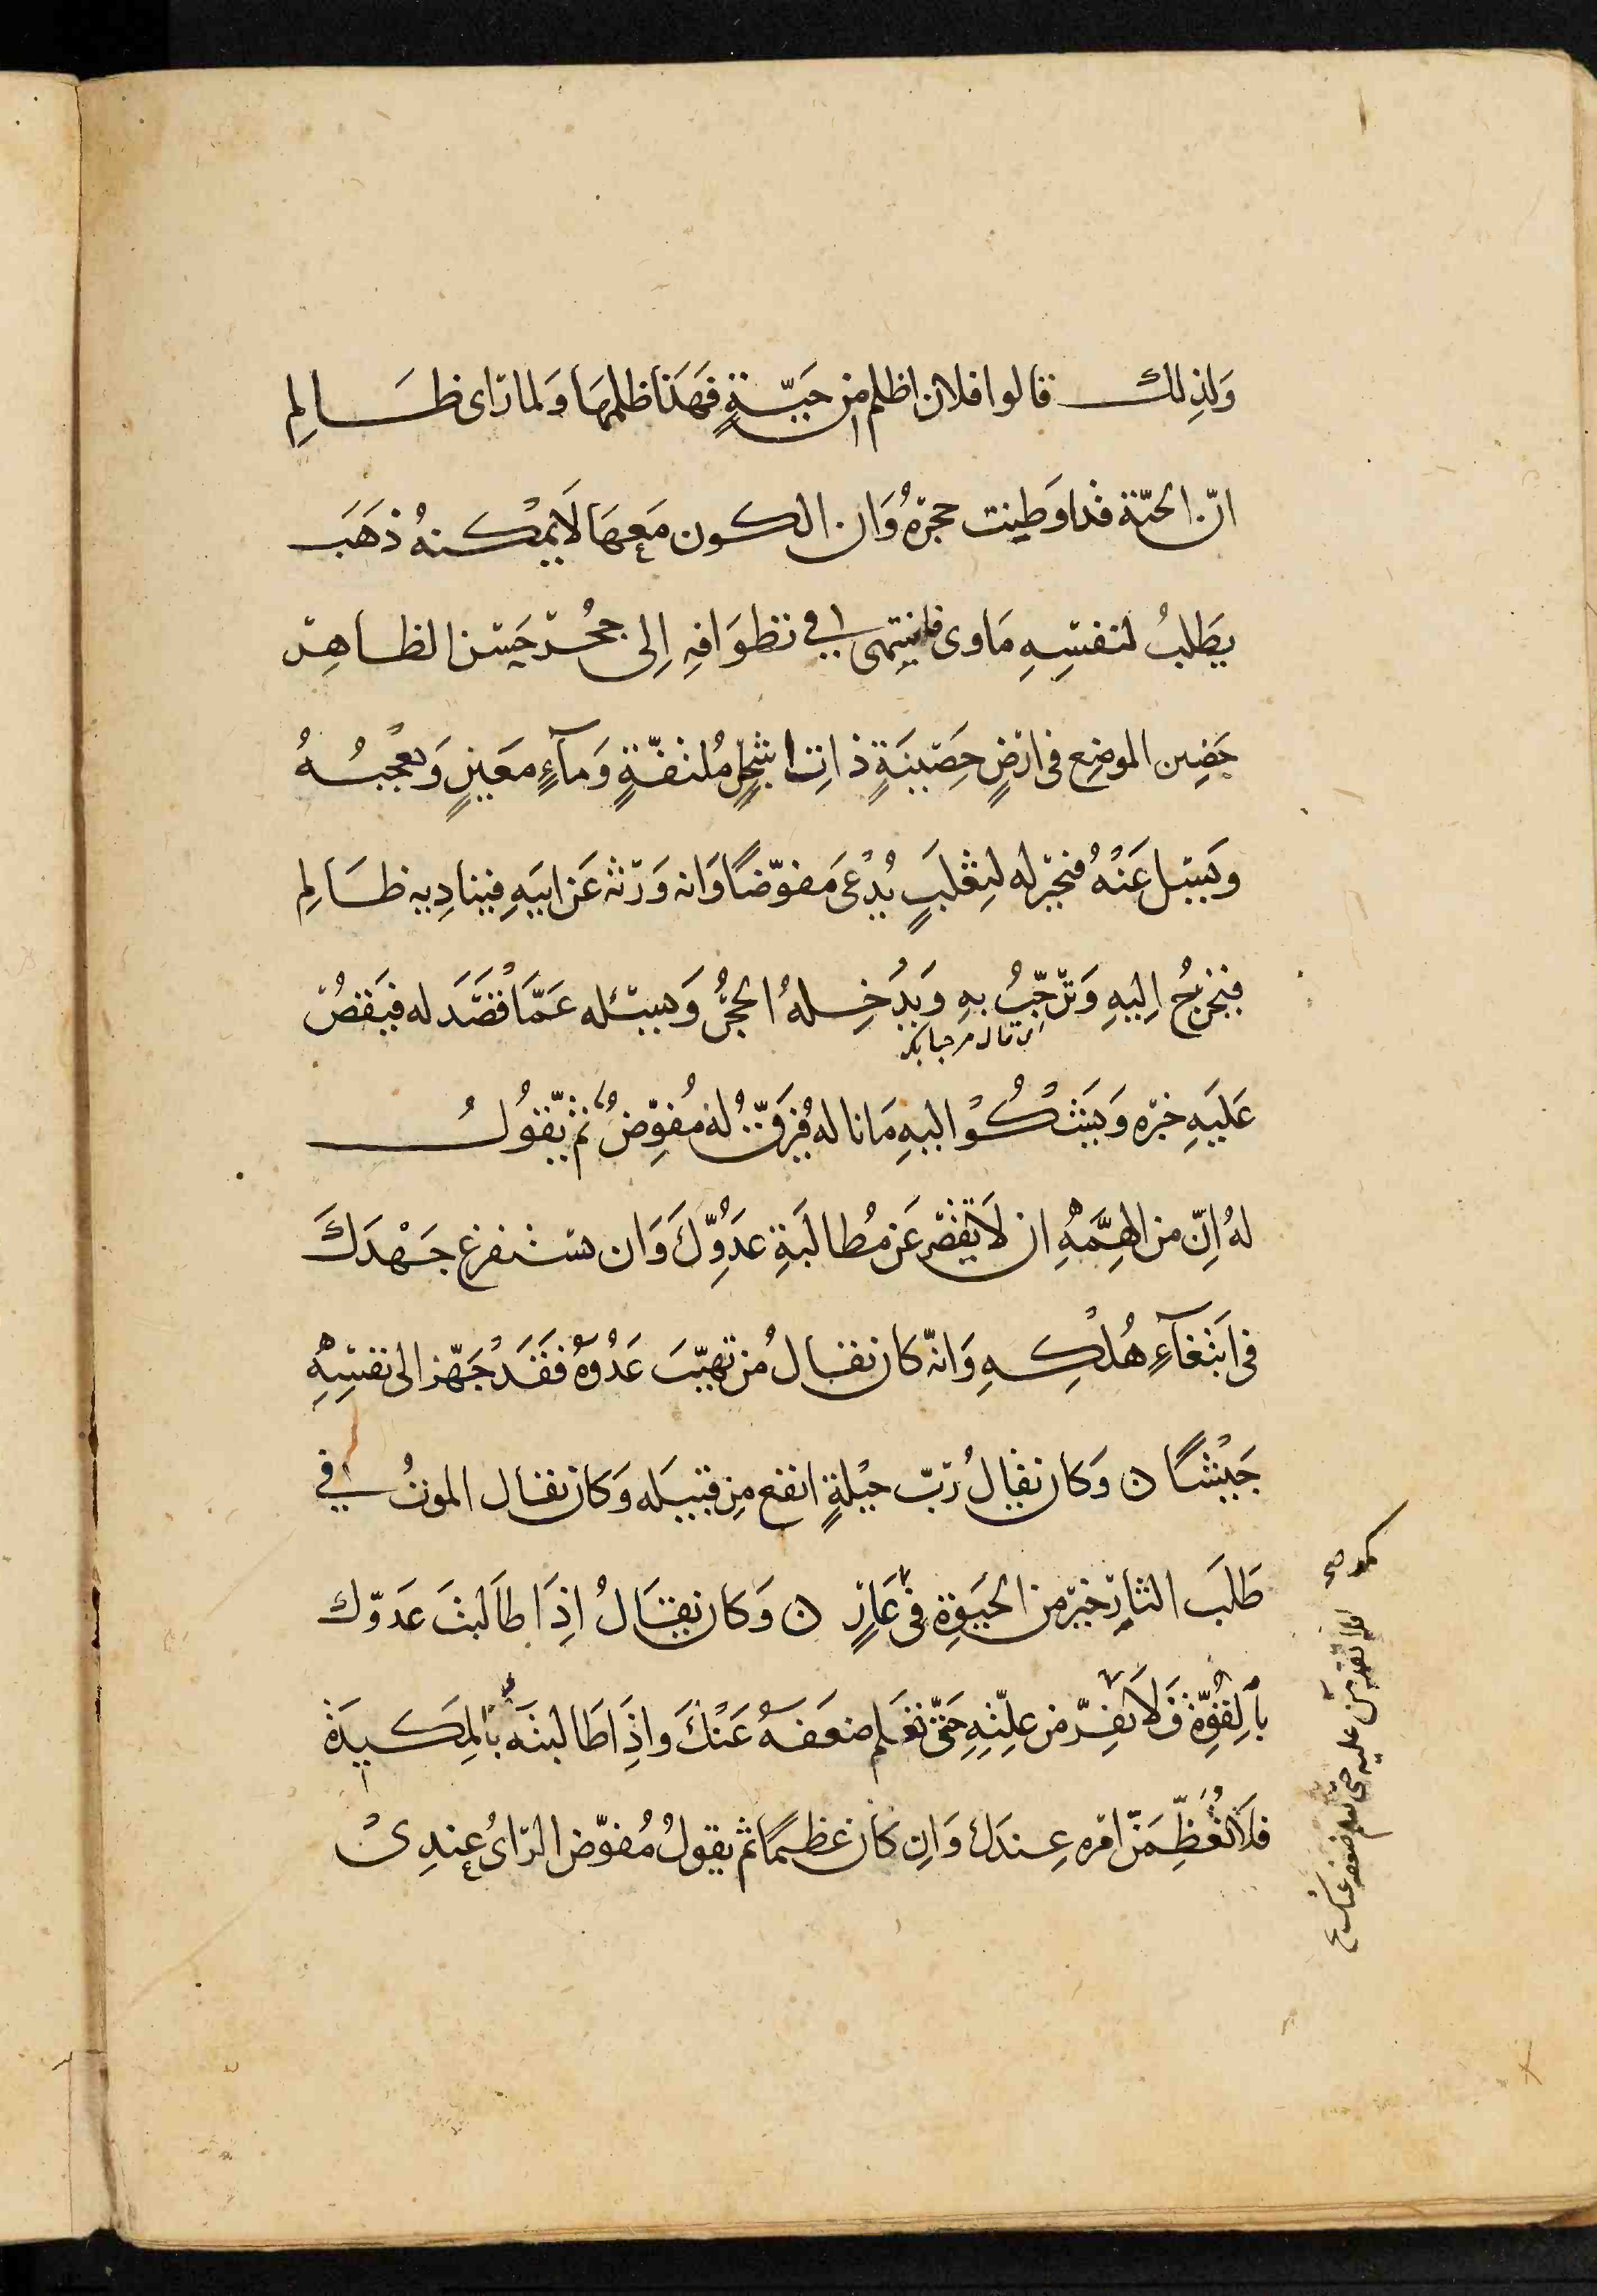 وَلذِلك قالوا فلان اظلم من حَيّةٍ فهَذا ظلمهَا وَلما رَاى ظَالِم
انّ الحيّة قد اوَطِنت حجرَهُ وَان الكون مَعهَا لَا يمْكنهُ ذهَبَ
يطَلبُ لنفسِهِ مَاوى فانتهى في تطوَافهِ اِلى جُحر حَسَن الظاهِر
حَصِين الموضِع فى ارْضٍ خَصْيبَةٍ ذاتِ اشجارٍ مُلتفّةٍ وَمآءٍ مَعَينٍ وَيعْجبُهُ
وَيَسئل عَنْهُ فيخبر له لِثعْلَبٍ يُدْعَى مفوّضًا وَانه وَرَثه عَن ابيَهِ فينادِيه ظَالِم
فيخرجُ اِليهِ وَيرَحّبُ بهِ وَيدُخِلهُ الحجُرُ وَيسئله عَمَّا قصَدَ له فيَقصُ
اى قال مرحبا بك
عَليَهِ خبَره وَيَشْكُوْا اليهِ مَا ناله فرَقّ لهُ مُفوِّضُ ثم يّقوُلُ
لهُ اِنّ من الهِمَّهِ ان لَا تقصر عَن مُطالَبَةِ عَدُوِّكَ وَان تستفرغ جَهْدَكَ
فى ابَتغآءِ هُلْكِهِ وَانّه كان يقال مُن تهيّبَ عَدُوّهُ فقَدَ جَهّز الى نفسِهِ
جَيْشًا ن وَكان يقالُ رُبّ حيْلةٍ انفع مِن قبيَله وَكان يقال الموتُ في
طَلَبَ الثارِ خيَر من الحَيَوةِ فى عَارٍ ن وَكان يقَالُ اِذَا طَالَبتَ عَدوّك
بالقوّة فَلَا تفِرّ من علِتِهِ حَتّى تعَلم ضعَفهُ عَنْكَ واذَا طَالبتَهُ بالمَكيدَة
فلَا تُعَظِّمَنّ امَره عِندَك وَاِن كَان عَظيمًا ثم يقولُ مُفوّض الرّاىُ عِندِىْ
فلا تقدمن عليه حتى تعلم ضعفه عنك